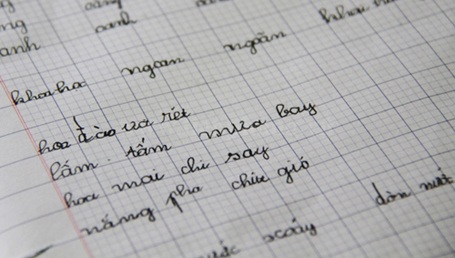 anh anh
khoa học ngoan ngoãn
hoa đào ưa rét
lấm tấm mưa bay
hoa mai chỉ say
nắng pha chút gió
xoáy